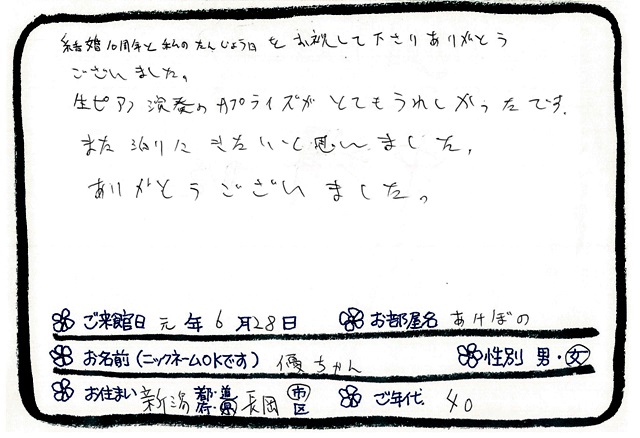 結婚10周年と私のたんじょう日をお祝して下さりありがとう
ございました。
生ピアノ演奏のサプライズがとてもうれしかったです。
また泊りにきたいと思いました。
ありがとうございました。
ご来館日 元年6月28日 お部屋名 あけぼの
お名前(ニックネームOKです) 優ちゃん 性別 男・女
お住まい 新潟 都・道・府・県 長岡 市・区 ご年代 40